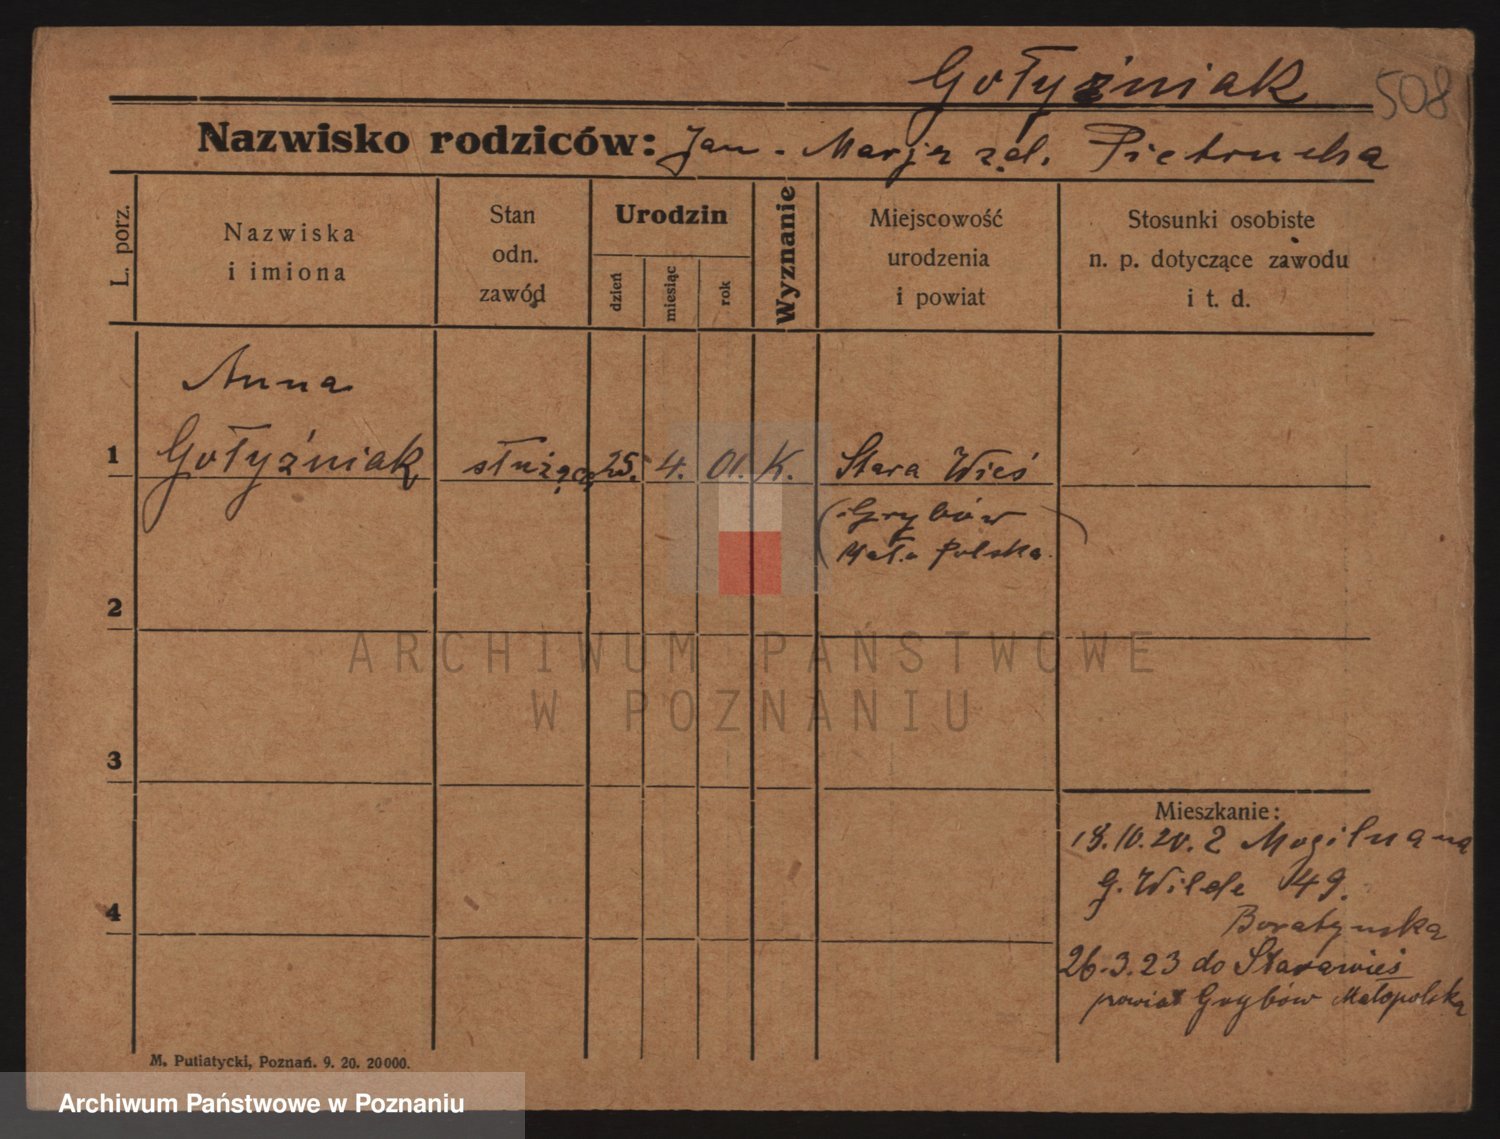 Gołyźniak 508
Nazwisko rodziców: Jan - Marja z d. Pietrucha
L. porz.
Nazwiska
i imiona
Stan
odn.
zawód
Urodzin
dzień
miesiąc
rok
Wyznanie
Miejscowość
urodzenia
i powiat
Stosunki osobiste
n. p. dotyczące zawodu
i t. d.
Anna
1 Gołyźniak służąca 25. 4. 01. K. Stara Wieś
(Grybów
Mało Polska)
2
3
4
Mieszkanie:
18.10.20. z Mogilna na
G. Wilde 49.
Boratyńska
26.3.23 do Starawieś
powiat Grybów Małopolska
M. Putiatycki, Poznań. 9. 20. 20000.
ARCHIWUM PAŃSTWOWE
W POZNANIU
Archiwum Państwowe w Poznaniu